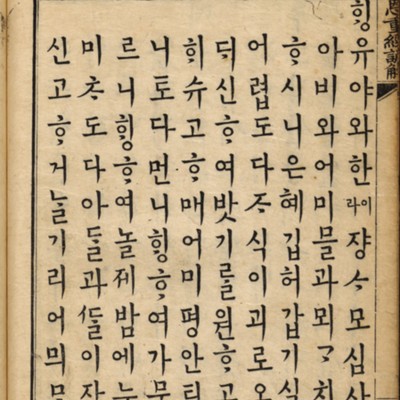 恩重經諺解
ᄒᆡᆼ유야와한이라쟝ᄉᆞ모심사
아비와어미믈과뫼ᄀᆞ치
ᄒᆞ시니은혜깁허갑기식
어렵도다ᄌᆞ식이괴로오
ᄃᆡ신ᄒᆞ여밧기ᄅᆞᆯ원ᄒᆞ고
희슈고ᄒᆞ매어미평안티
니토다먼니ᄒᆡᆼᄒᆞ여가문
르니ᄒᆡᆼᄒᆞ여놀제밤에누
미ᄎᆞ도다아ᄃᆞᆯ과ᄯᆞᆯ이자
신고ᄒᆞ거ᄂᆞᆯ기리어믜